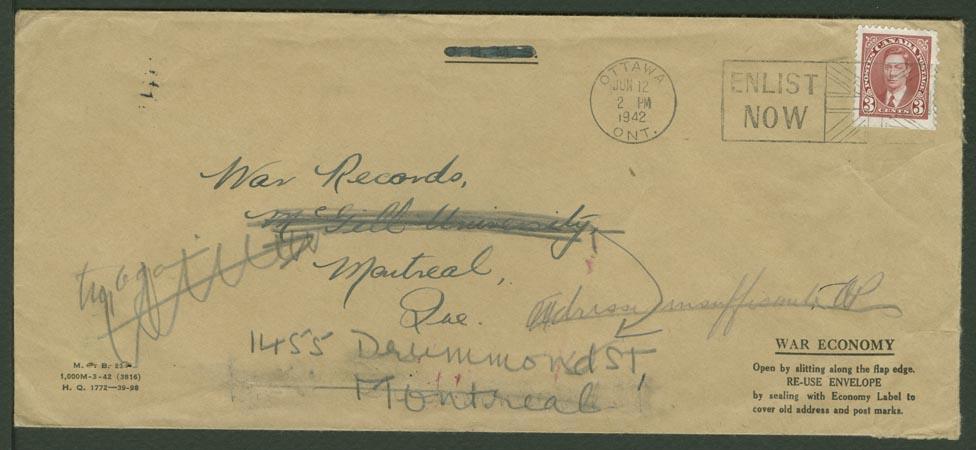 OTTAWA
JUN 12
2 PM
1942
ONT.
ENLIST
NOW
POSTES CANADA POSTAGE
3 CENTS 3
War Records,
McGill University,
Montreal,
Que.
try again
Adresse insuffisante
1455 Drummond St,
Montreal
WAR ECONOMY
Open by slitting along the flap edge.
RE-USE ENVELOPE
by sealing with Economy Label to
cover old address and post marks.
1,000M-3-42 (3816)
H. Q. 1772—39-98